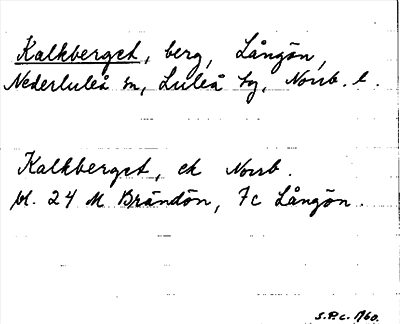 Kalkberget, berg, Långön,
Nederluleå sn, Luleå tg, Norrb. l.
Kalkberget, ek Norrb.
bl. 24 M Brändön, 7c Långön.
S.P.C. 1960.